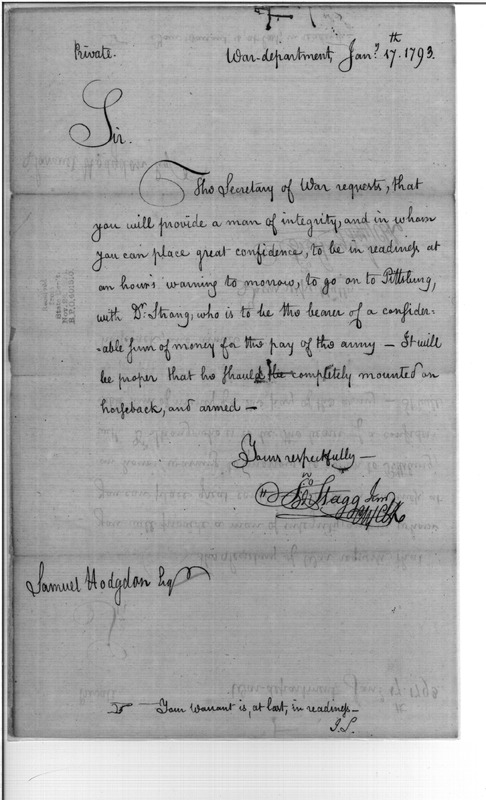 Private.
War-department, Jany. 17th. 1793.
Sir.
The Secretary of War requests, that
you will provide a man of integrity, and in whom
you can place great confidence, to be in readiness at
an hour's warning to morrow, to go on to Pittsburg,
with Dr. Strong, who is to be the bearer of a consider-
-able sum of money for the pay of the army — It will
be proper that he should be completely mounted on
horseback, and armed —
Yours respectfully —
Jno Stagg Junr
Ch Clk
Samuel Hodgdon Esqr
Your warrant is, at last, in readiness —
J.S.